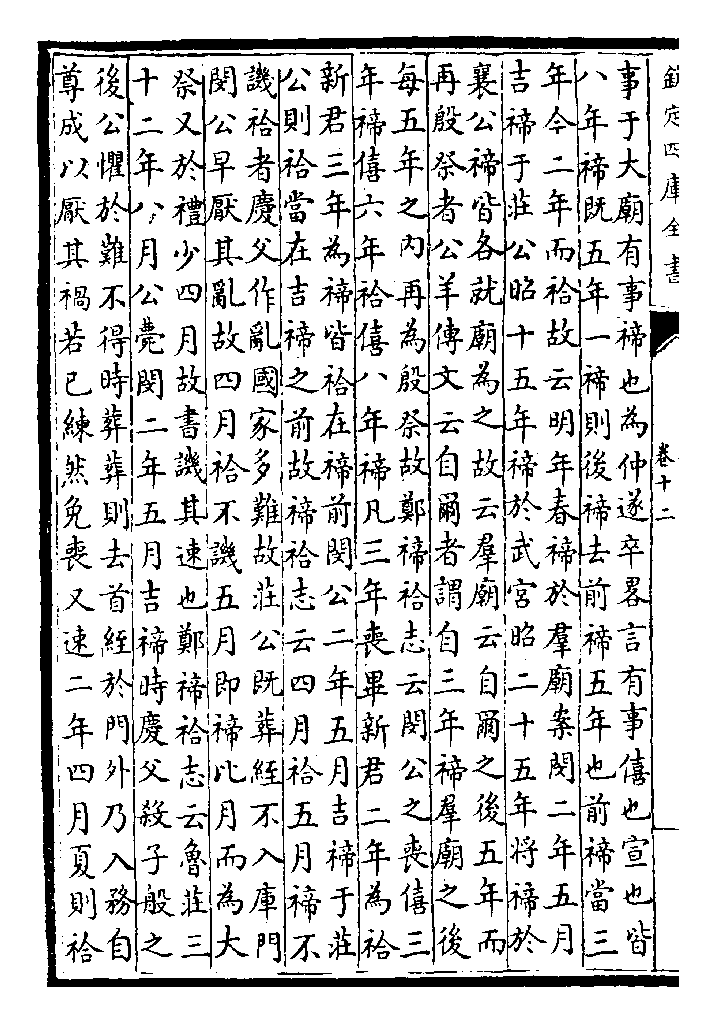 欽定四庫全書
卷十二
事于大廟有事禘也為仲遂卒畧言有事僖也宣也皆
八年禘既五年一禘則後禘去前禘五年也前禘當三
年今二年而祫故云明年春禘於羣廟案閔二年五月
吉禘于莊公昭十五年禘於武宮昭二十五年將禘於
襄公禘皆各就廟為之故云羣廟云自爾之後五年而
再殷祭者公羊傳文云自爾者謂自三年禘羣廟之後
每五年之內再為殷祭故鄭禘祫志云閔公之喪僖三
年禘僖六年祫僖八年禘凡三年喪畢新君二年為祫
新君三年為禘皆祫在禘前閔公二年五月吉禘于莊
公則祫當在吉禘之前故禘祫志云四月祫五月禘不
譏祫者慶父作亂國家多難故莊公既葬絰不入庫門
閔公早厭其亂故四月祫不譏五月即禘比月而為大
祭又於禮少四月故書譏其速也鄭禘祫志云魯莊三
十二年八月公薨閔二年五月吉禘時慶父殺子般之
後公懼於難不得時葬葬則去首絰於門外乃入務自
尊成以厭其禍若已練然免喪又速二年四月夏則祫